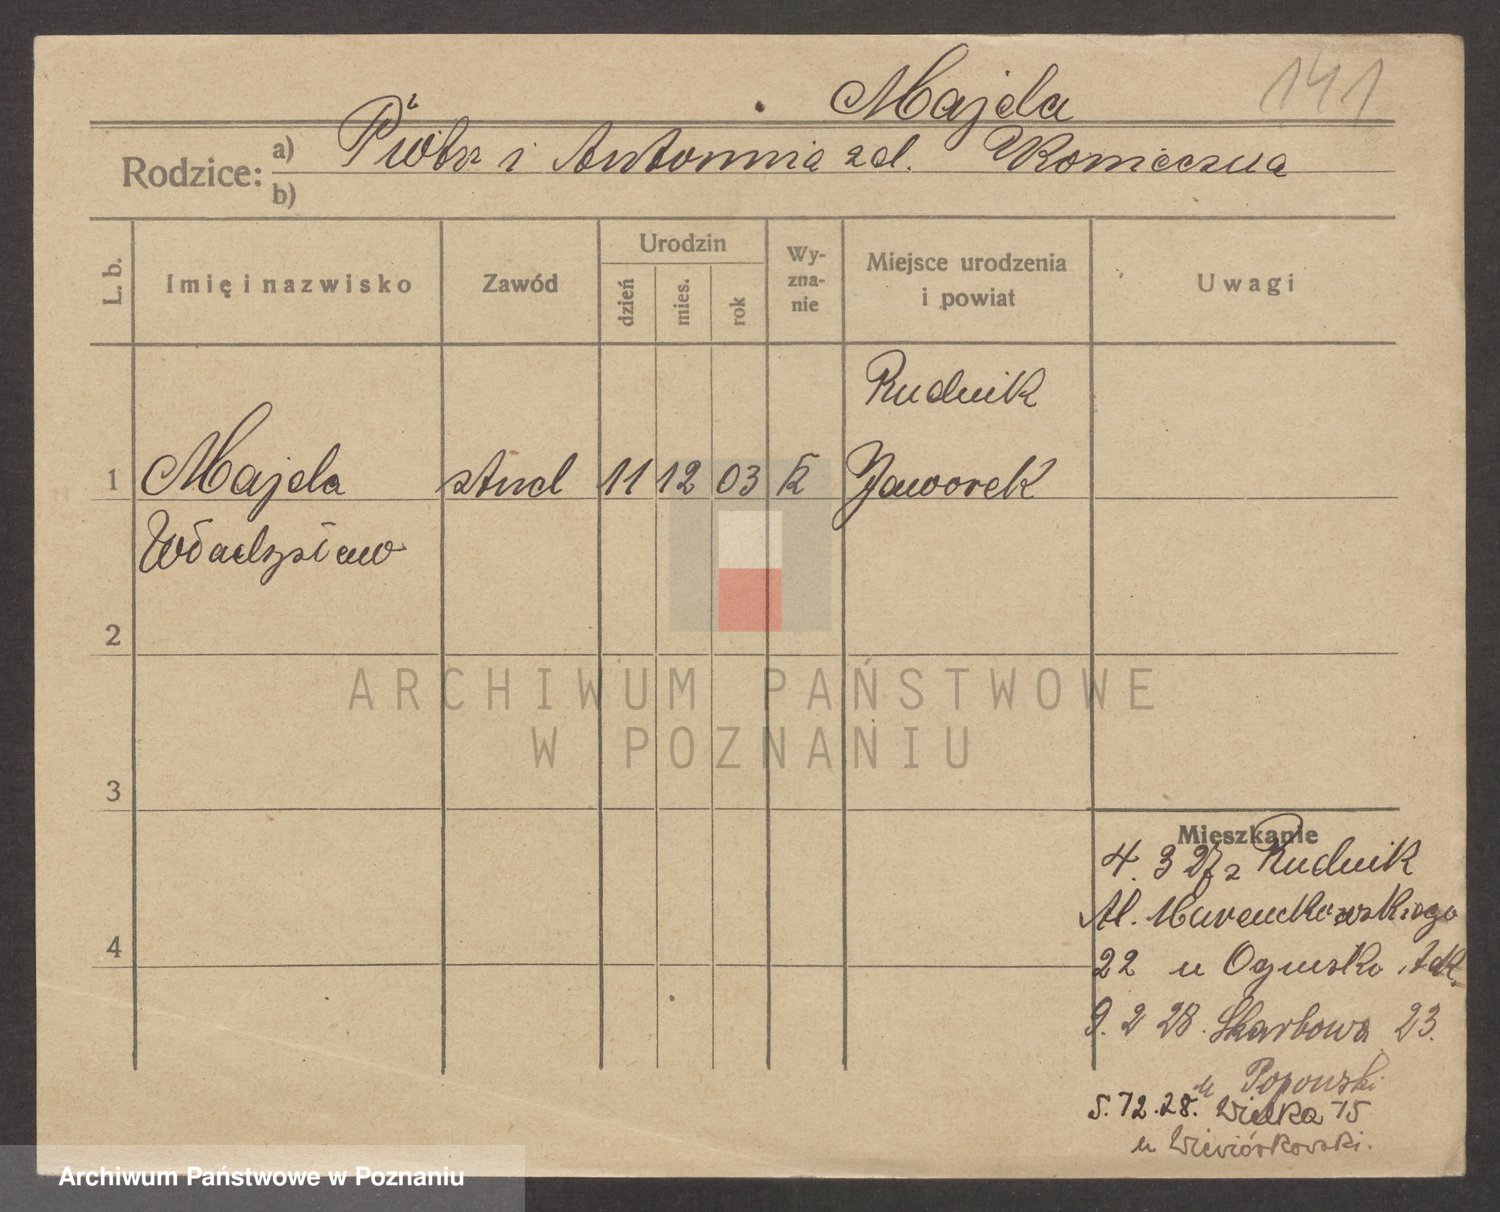 Majda 141
Rodzice: a) Piotr i Antonina zd. Konieczna
b)
L. b. Imię i nazwisko Zawód Urodzin dzień mies. rok Wy-zna-nie Miejsce urodzenia i powiat Uwagi
Rudnik
1 Majda stud 11 12 03 k Jaworek
Władysław
2
ARCHIWUM PAŃSTWOWE
W POZNANIU
3
Mieszkanie
4. 3 27 z Rudnik
Al. Marcinkowskiego
4
22 u Oginsko
9. 2 28. Skarbowa 23.
u Popowski
5.12.28. Wielka 15
u Wiewiórkowski.
Archiwum Państwowe w Poznaniu